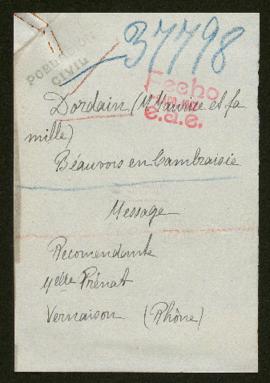 37798
POBLACION
CIVIL
Fecho
e.d.e.
Dordain (Mr Maurice et fa
mille)
Béauvois en Cambraisie
Message
Recomendante
Prénat
Vernaison (Rhône)